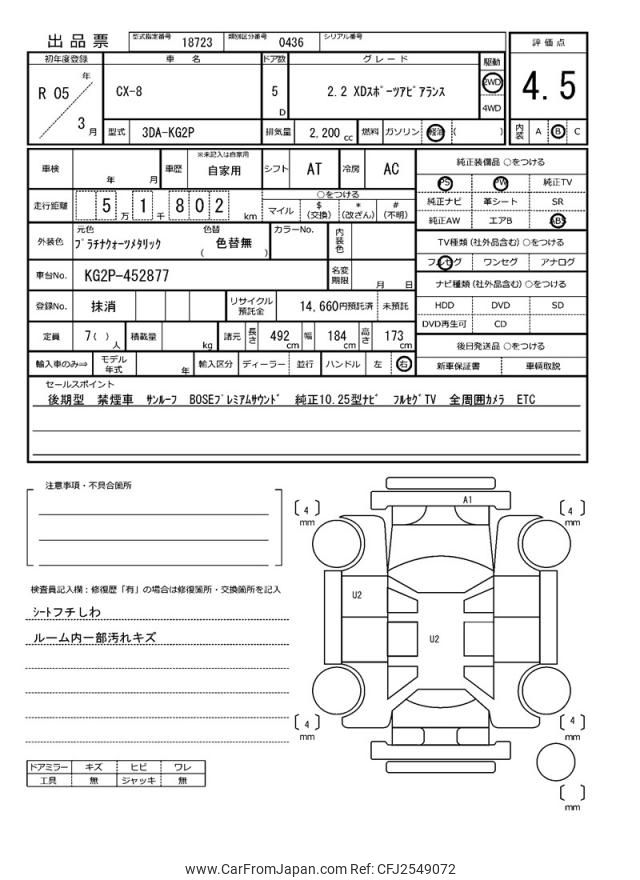 出品票 型式指定番号 18723 類別区分番号 0436 シリアル番号
初年度登録 車名 ドア数 グレード 駆動 評価点
R 05 年 3 月 CX-8 5 D 2.2 XDスポーツアピアランス 2WD 4WD 4.5
型式 3DA-KG2P 排気量 2,200 cc 燃料 ガソリン 軽油 ( ) 内装 A B C
車検 年 月 車歴 ※未記入は自家用 自家用 シフト AT 冷房 AC
走行距離 5 万 1 千 8 0 2 km ○をつける マイル $ (交換) * (改ざん) # (不明)
外装色 元色 プラチナクォーツメタリック 色替 ( 色替無 ) カラーNo. 内装色
車台No. KG2P-452877 名変期限 月 日
登録No. 抹消 リサイクル預託金 14,660円預託済 未預託
定員 7( ) 人 積載量 kg 諸元 長さ 492 cm 幅 184 cm 高さ 173 cm
輸入車のみ⇒ モデル年式 年 輸入区分 ディーラー 並行 ハンドル 左 右
純正装備品 ○をつける
PS PW 純正TV
純正ナビ 革シート SR
純正AW エアB ABS
TV種類 (社外品含む) ○をつける
フルセグ ワンセグ アナログ
ナビ種類 (社外品含む) ○をつける
HDD DVD SD
DVD再生可 CD
後日発送品 ○をつける
新車保証書 車輌取説
セールスポイント
後期型 禁煙車 サンルーフ BOSEプレミアムサウンド 純正10.25型ナビ フルセグTV 全周囲カメラ ETC
注意事項・不具合箇所
検査員記入欄:修復歴「有」の場合は修復箇所・交換箇所を記入
シートフチしわ
ルーム内一部汚れキズ
ドアミラー キズ ヒビ ワレ
工具 無 ジャッキ 無
A1
[ 4 ] mm
[ 4 ] mm
U2
U2
[ 4 ] mm
[ 4 ] mm
[ ] mm
www.CarFromJapan.com Ref: CFJ2549072